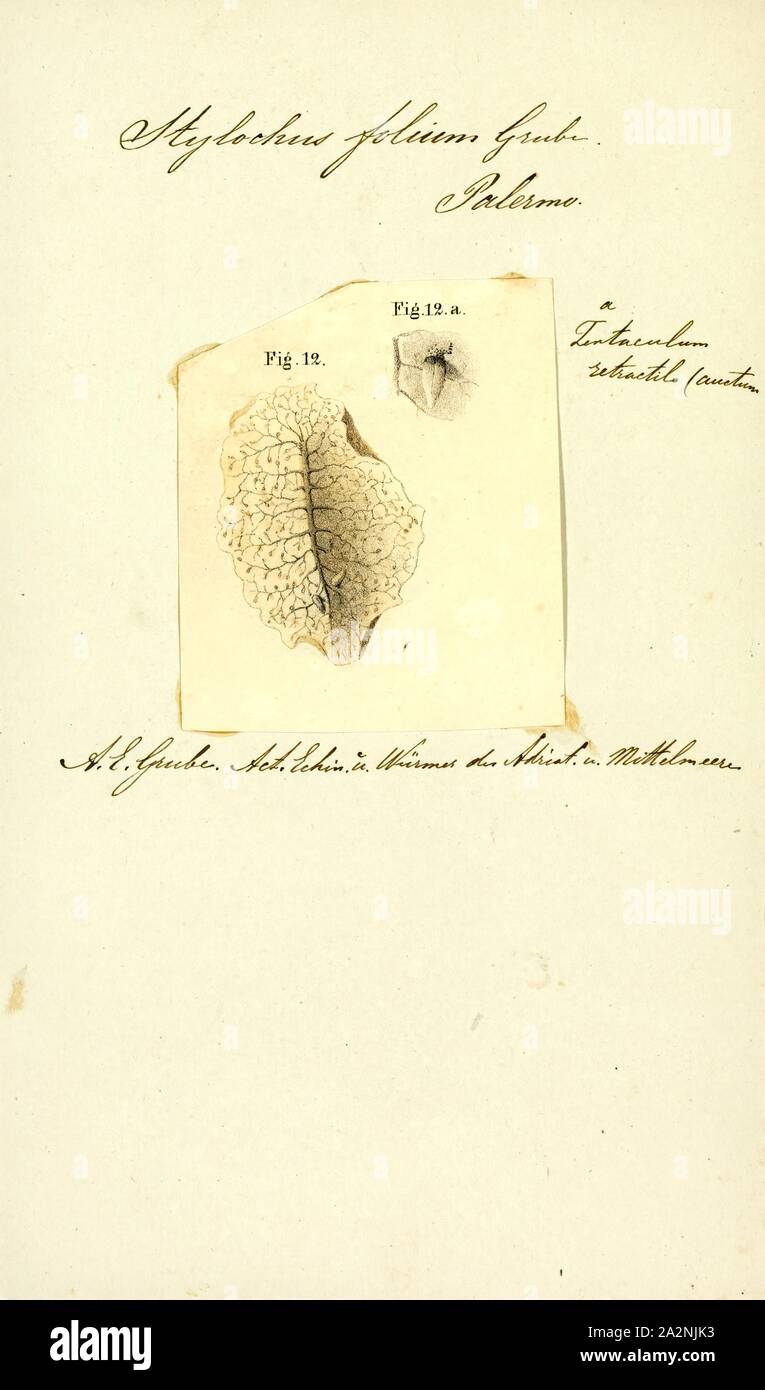 Stylochus folium Grube.
Palermo.
Fig. 12. a.
Fig. 12.
a
Tentaculum
retractile (auctum
A. E. Grube. Act. Echin. u. Würmer des Adriat. u. Mittelmeere
alamy
Image ID: A2NJK3
www.alamy.com